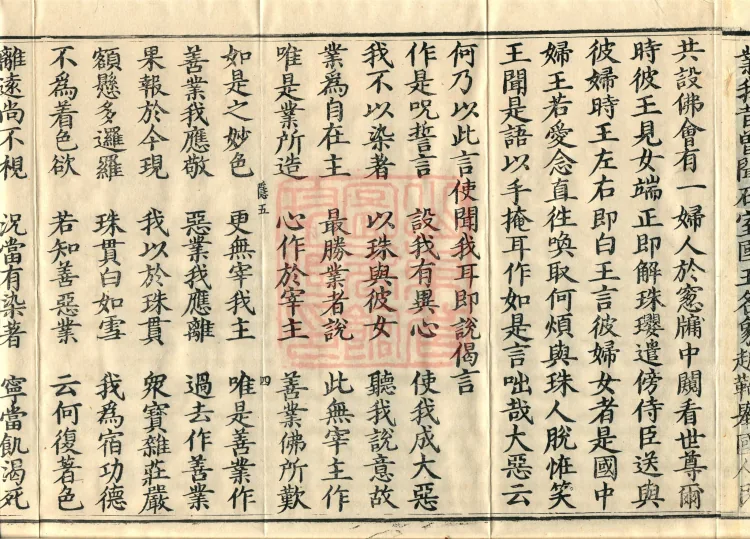 我昔曾聞石室國王名
共設佛會有一婦人於窓牖中闚看世尊爾
時彼王見女端正即解珠瓔遣傍侍臣送與
彼婦時王左右即白王言彼婦女者是國中
婦王若愛念直往喚取何煩與珠人脫恠笑
王聞是語以手掩耳作如是言咄哉大惡云
何乃以此言使聞我耳即說偈言
作是呪誓言 設我有異心 使我成大惡
我不以染著 以珠與彼女 聽我說意故
業爲自在主 最勝業者說 此無宰主作
唯是業所造 心作於宰主 善業佛所歎
五 四
如是之妙色 更無宰我主 唯是善業作
善業我應敬 惡業我應離 過去作善業
果報於今現 我以於珠貫 衆寶雜莊嚴
額懸多邏羅 珠貫白如雪 我爲宿功德
不爲着色欲 若知善惡業 云何復著色
離遠尚不視 況當有染著 寧當飢渴死